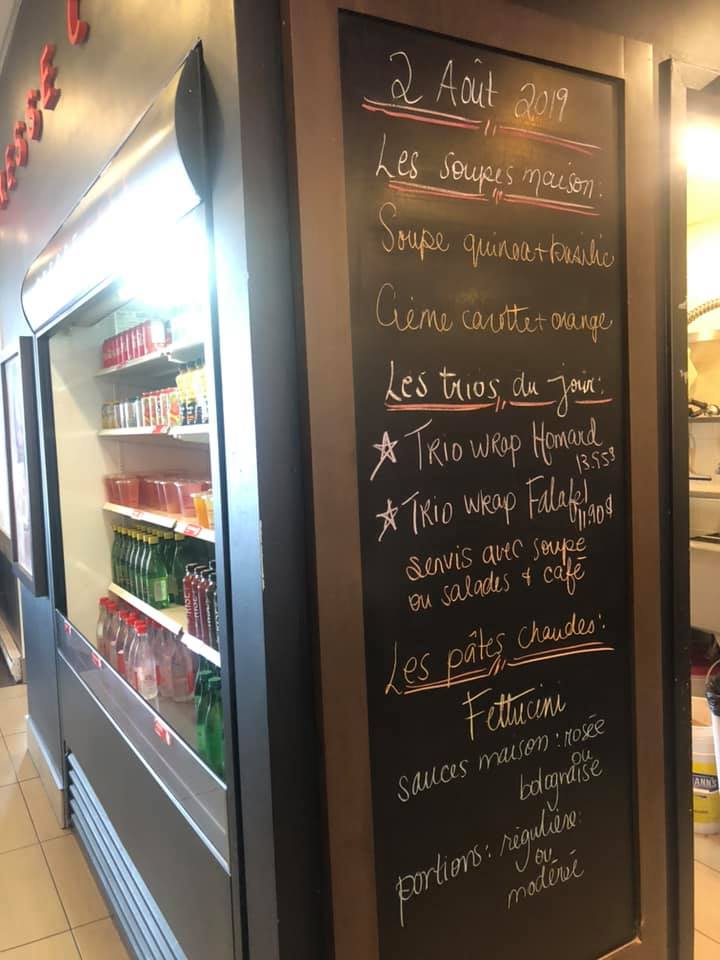 2 Août 2019
Les soupes maison:
Soupe quinoa + basilic
Crème carotte + orange
Les trios du jour:
Trio wrap Homard
13.95$
Trio wrap Falafel
11.90$
servis avec soupe
ou salades & café
Les pâtes chaudes:
Fettucini
sauces maison: rosée
ou
bolognaise
portions: régulière
ou
modéré